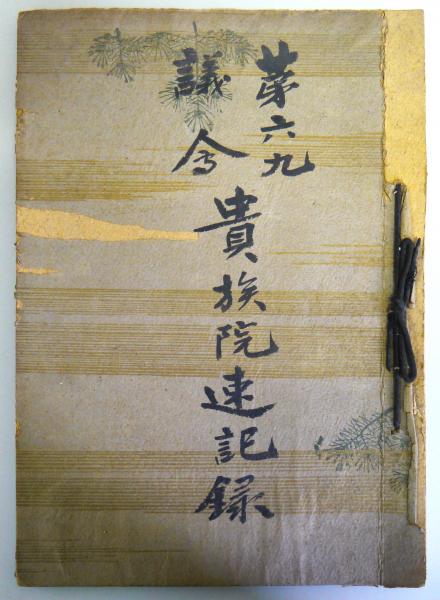 第六九
議会
貴族院速記録